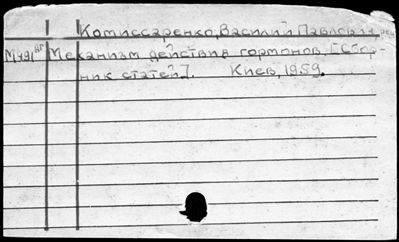 Комиссаренко, Василий Павлович, ред.
М491 Механизм действия гормонов. [Сбор-
ник статей]. Киев, 1959.